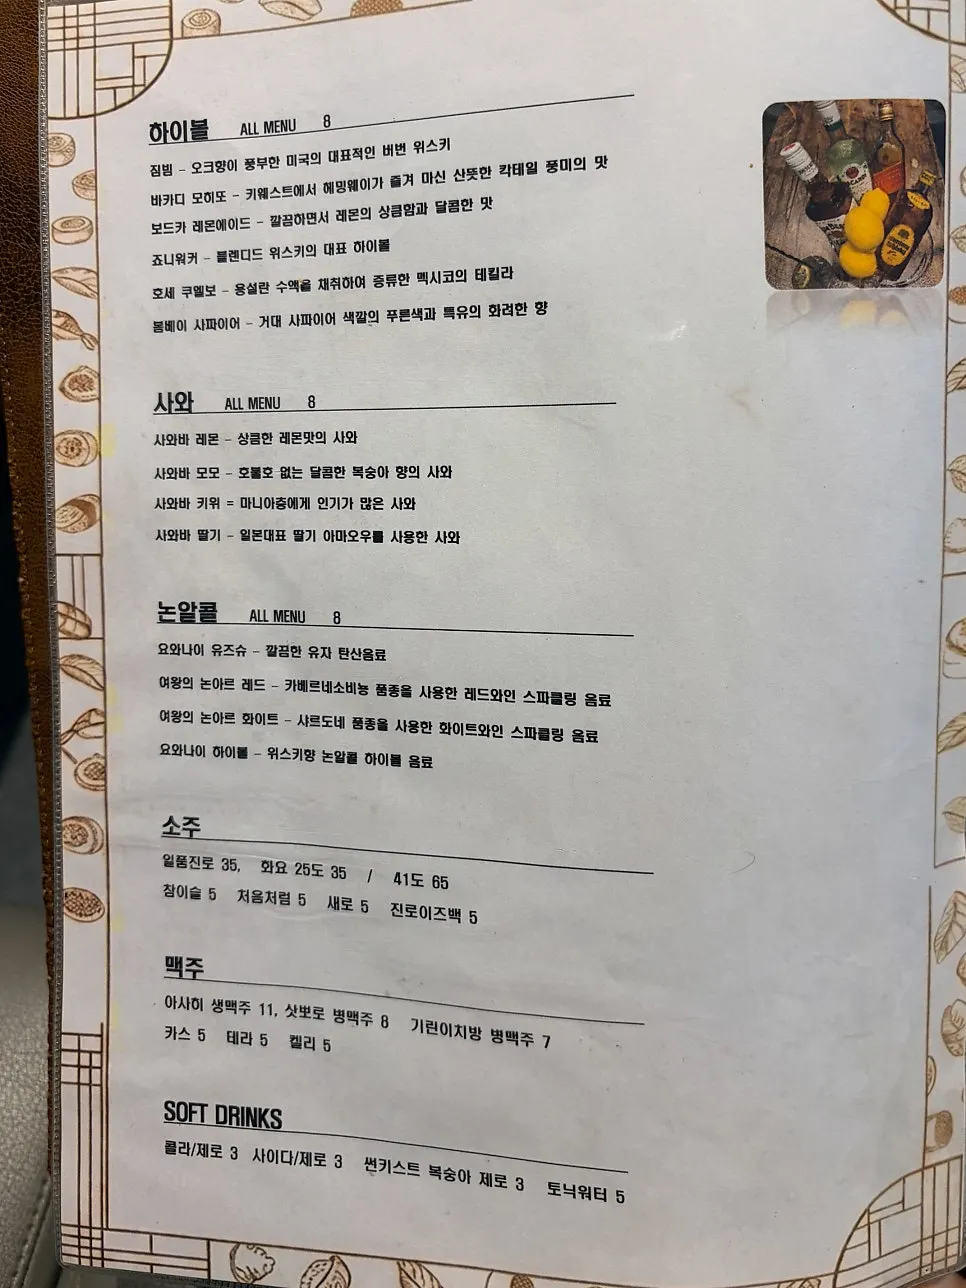 하이볼 ALL MENU 8
짐빔 - 오크향이 풍부한 미국의 대표적인 버번 위스키
바카디 모히또 - 키웨스트에서 헤밍웨이가 즐겨 마신 산뜻한 칵테일 풍미의 맛
보드카 레몬에이드 - 깔끔하면서 레몬의 상큼함과 달콤한 맛
죠니워커 - 블렌디드 위스키의 대표 하이볼
호세 쿠엘보 - 용설란 수액을 채취하여 증류한 멕시코의 테킬라
봄베이 사파이어 - 거대 사파이어 색깔의 푸른색과 특유의 화려한 향
사와 ALL MENU 8
사와바 레몬 - 상큼한 레몬맛의 사와
사와바 모모 - 호불호 없는 달콤한 복숭아 향의 사와
사와바 키위 = 마니아층에게 인기가 많은 사와
사와바 딸기 - 일본대표 딸기 아마오우를 사용한 사와
논알콜 ALL MENU 8
요와나이 유즈슈 - 깔끔한 유자 탄산음료
여왕의 논아르 레드 - 카베르네소비뇽 품종을 사용한 레드와인 스파클링 음료
여왕의 논아르 화이트 - 샤르도네 품종을 사용한 화이트와인 스파클링 음료
요와나이 하이볼 - 위스키향 논알콜 하이볼 음료
소주
일품진로 35, 화요 25도 35 / 41도 65
참이슬 5 처음처럼 5 새로 5 진로이즈백 5
맥주
아사히 생맥주 11, 삿뽀로 병맥주 8 기린이치방 병맥주 7
카스 5 테라 5 켈리 5
SOFT DRINKS
콜라/제로 3 사이다/제로 3 썬키스트 복숭아 제로 3 토닉워터 5